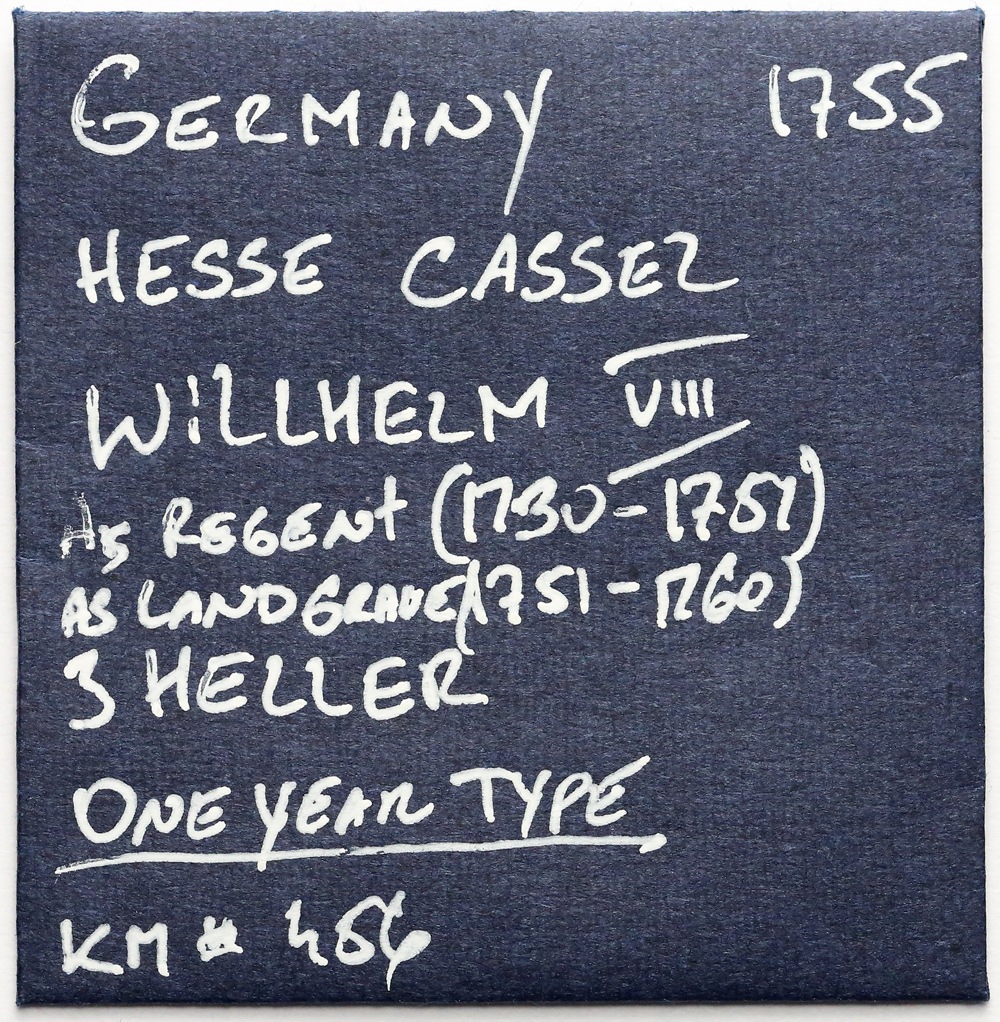 GERMANY 1755
HESSE CASSEL
WILLHELM VIII
As REGENT (1730-1751)
AS LANDGRAVE (1751-1760)
3 HELLER
ONE YEAR TYPE
KM # 456